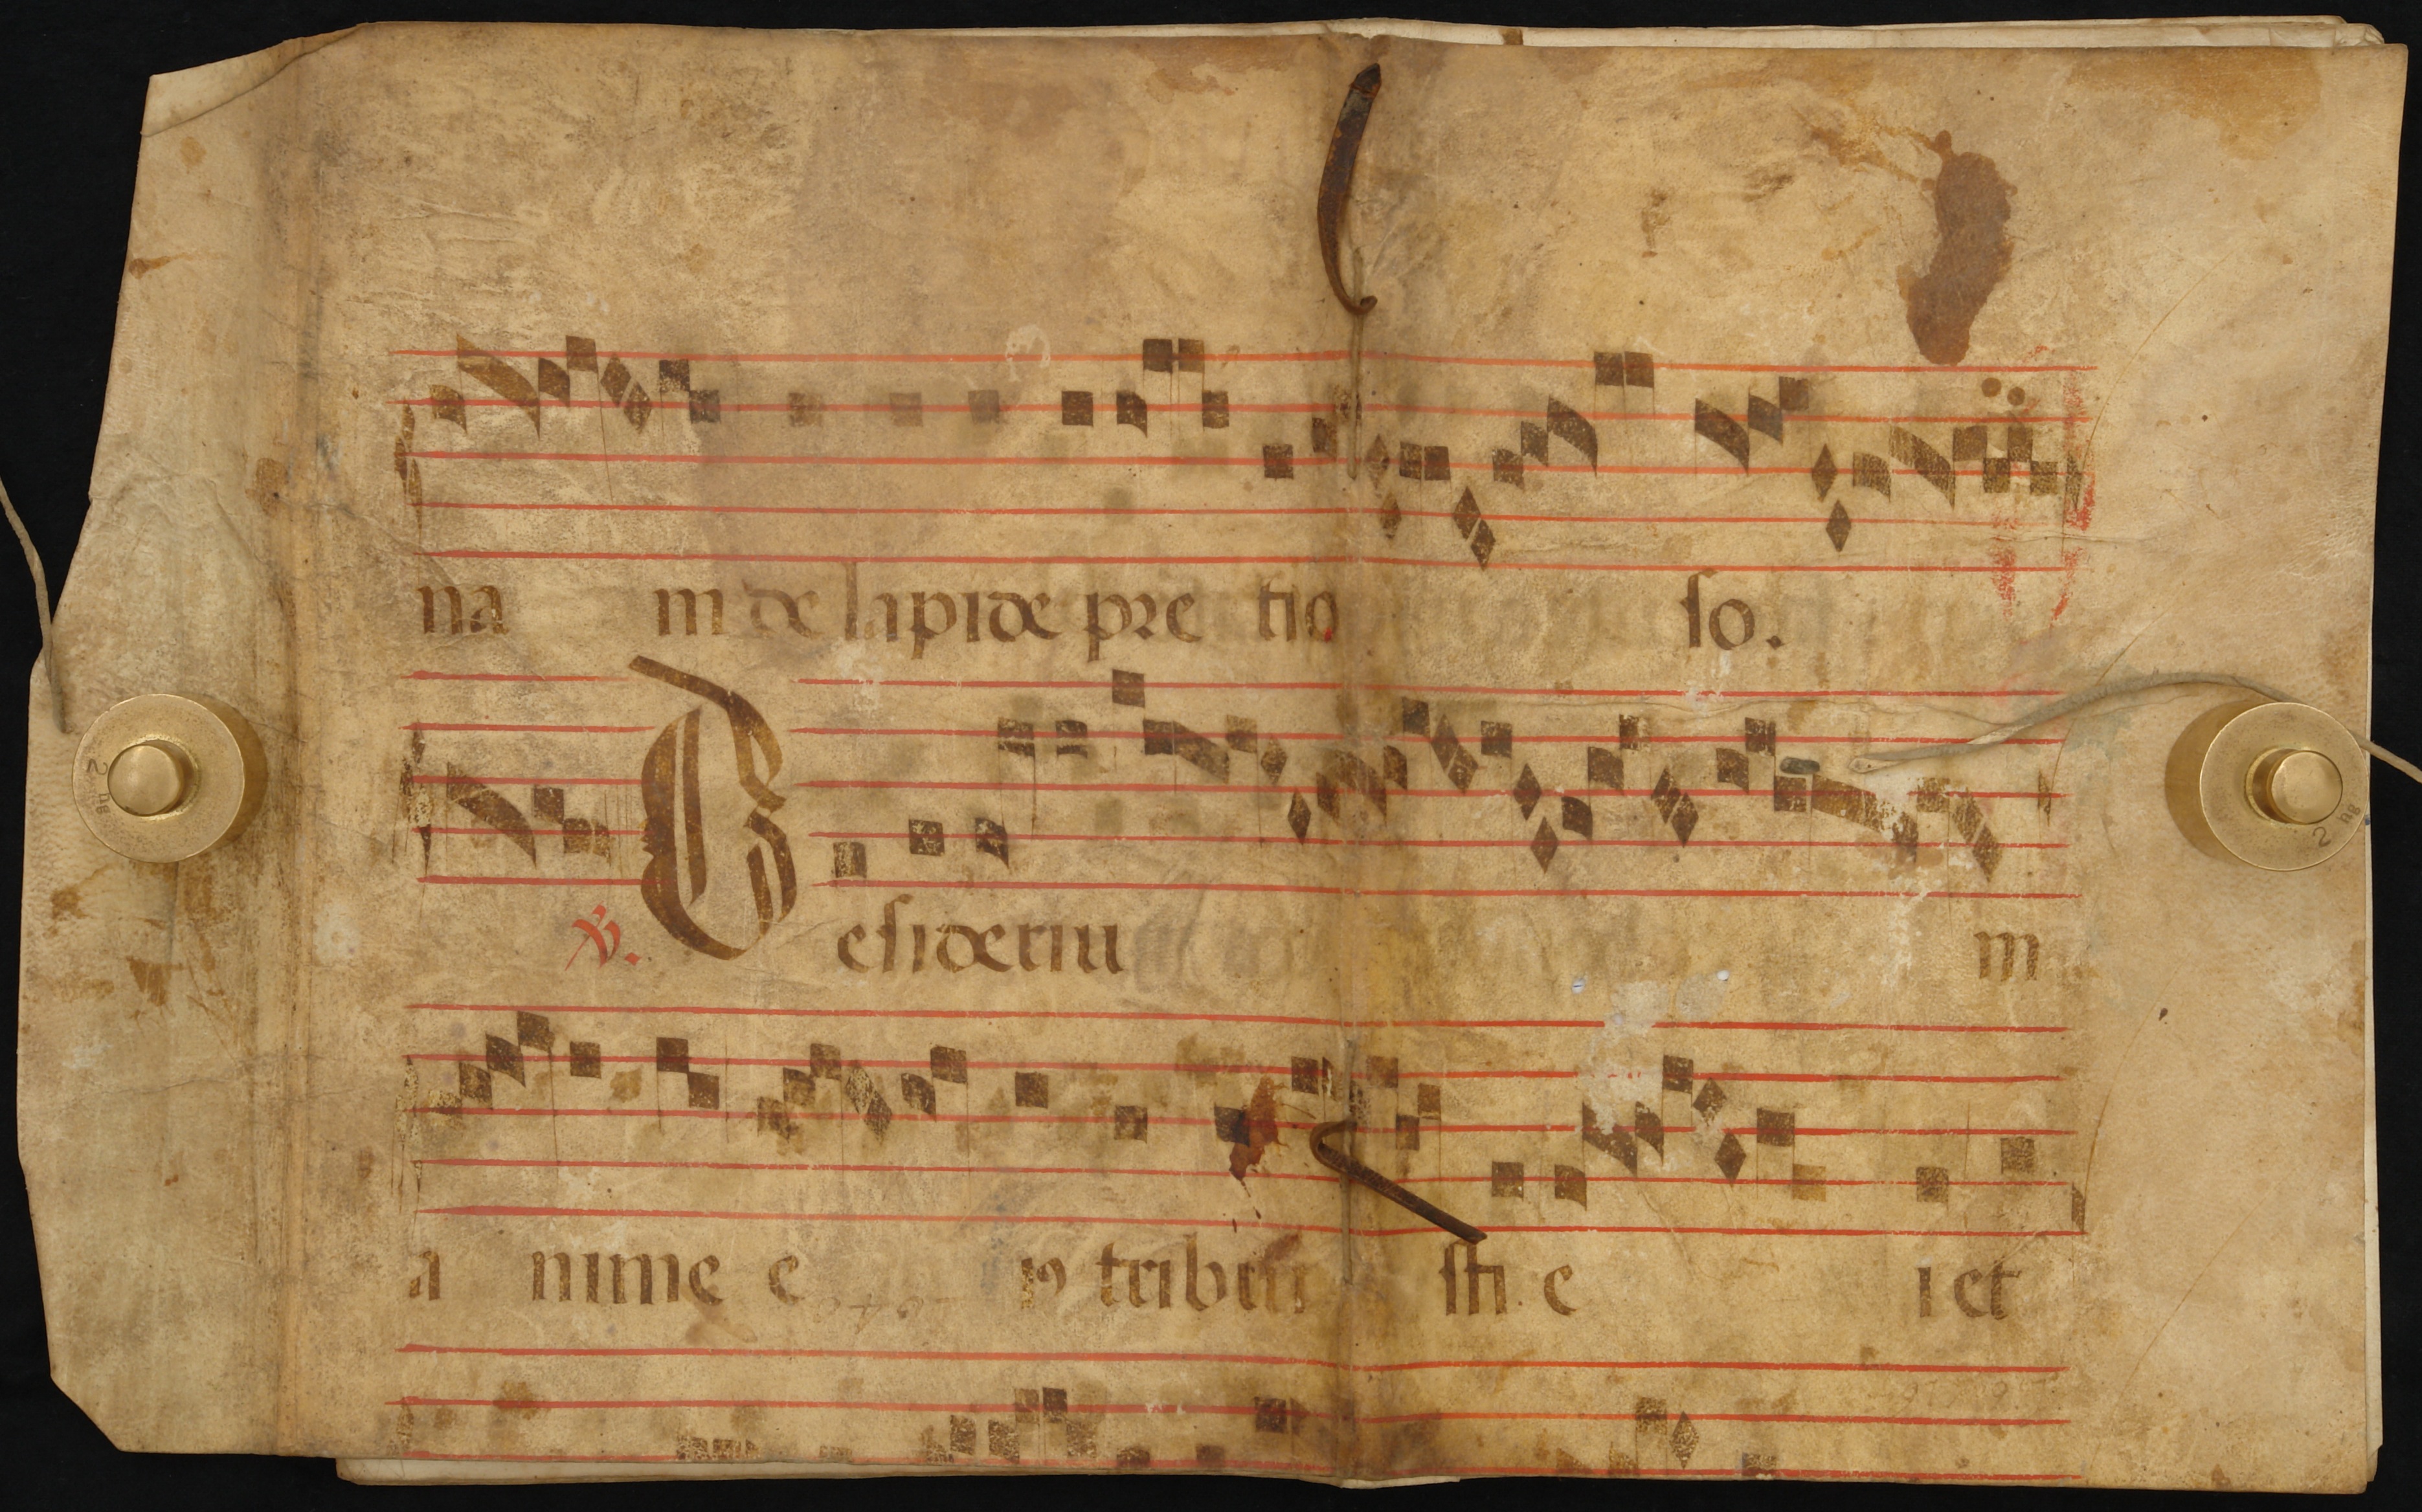 na m de lapide pre tio so.
℣. Desideriu m
a nime e iꝰ tribui sti e i et